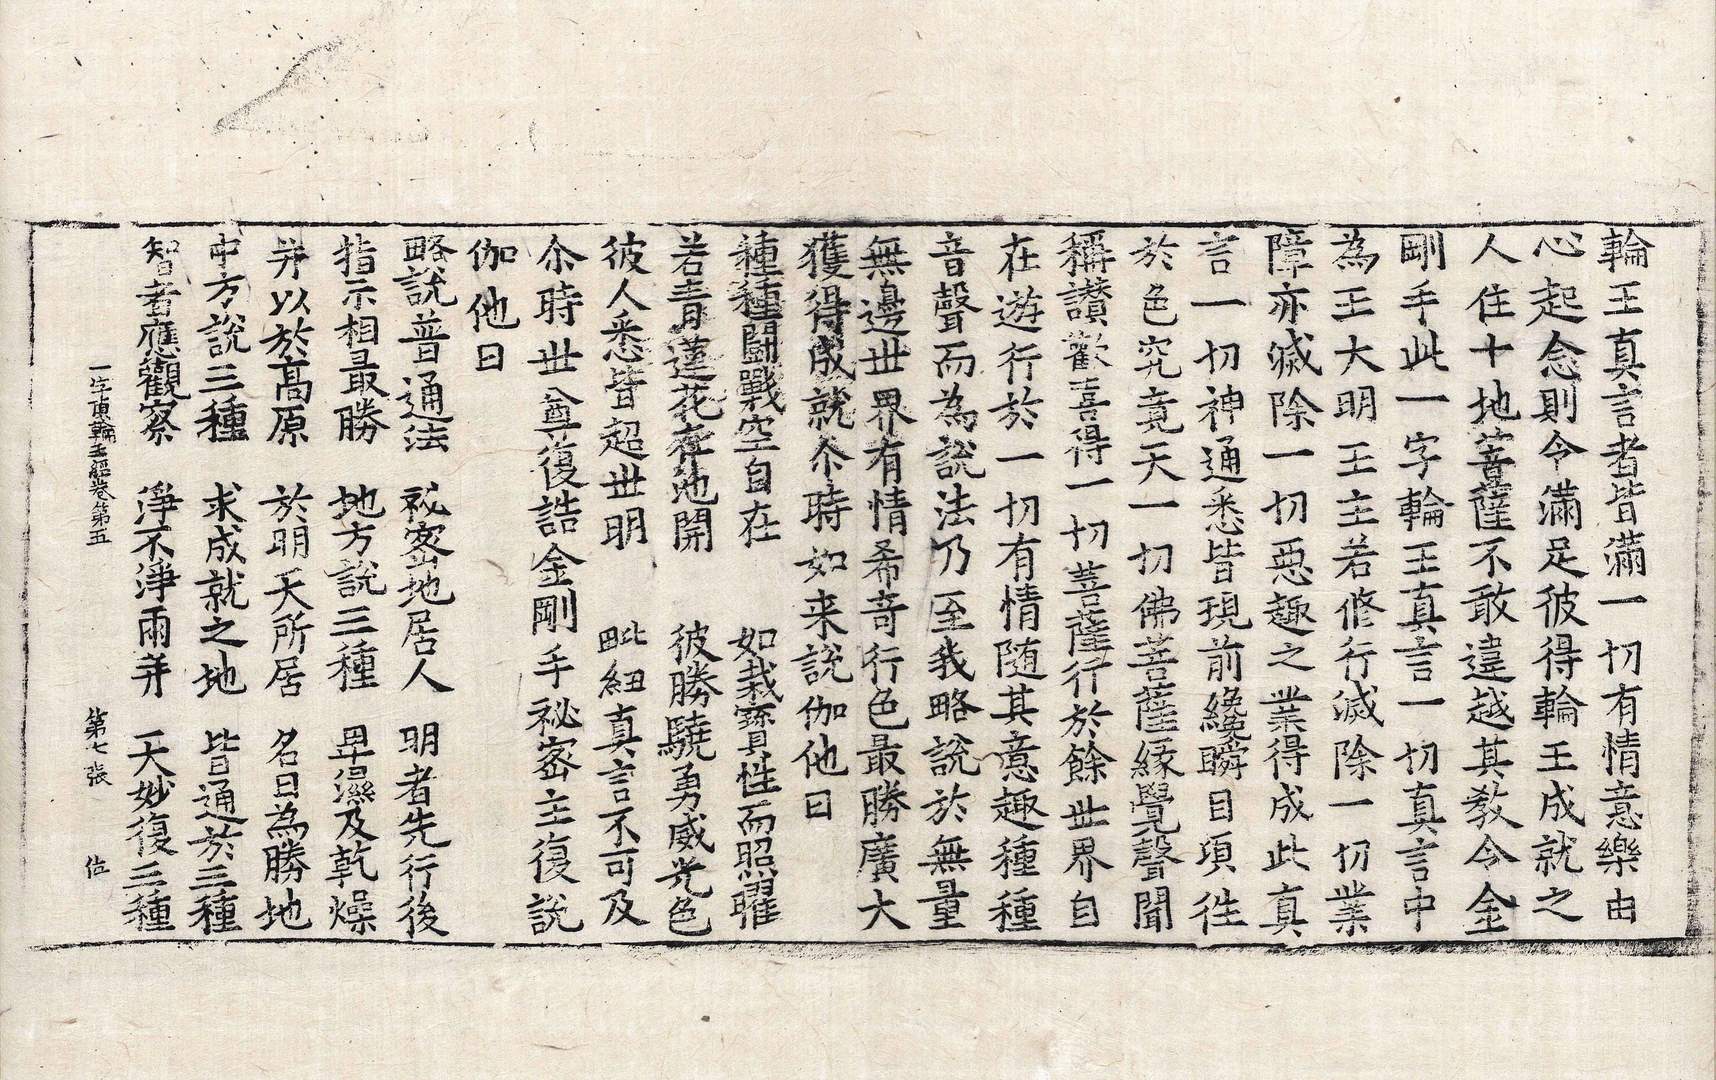 輪王真言者皆滿一切有情意樂由
心起念則令滿足彼得輪王成就之
人住十地菩薩不敢違越其教令金
剛手此一字輪王真言一切真言中
為王大明王主若修行滅除一切業
障亦滅除一切惡趣之業得成此真
言一切神通悉皆現前纔瞬目頃徃
於色究竟天一切佛菩薩緣覺聲聞
稱讚歡喜得一切菩薩行於餘世界自
在遊行於一切有情随其意趣種種
音聲而為說法乃至我略說於無量
無邊世界有情希奇行色最勝廣大
獲得成就尒時如来說伽他曰
種種鬪戰空自在　如栽寶性而照曜
若青蓮花在池開　彼勝驍勇威光色
彼人悉皆超世明　毗紐真言不可及
尒時世尊復誥金剛手祕密主復說
伽他曰
略說普通法　祕密地居人　明者先行後
指示相最勝　地方說三種　卑濕及乾燥
并以於高原　於明天所居　名曰為勝地
中方說三種　求成就之地　皆通於三種
智者應觀察　淨不淨兩并　天妙復三種
一字頂輪王經卷第五　第七張　位